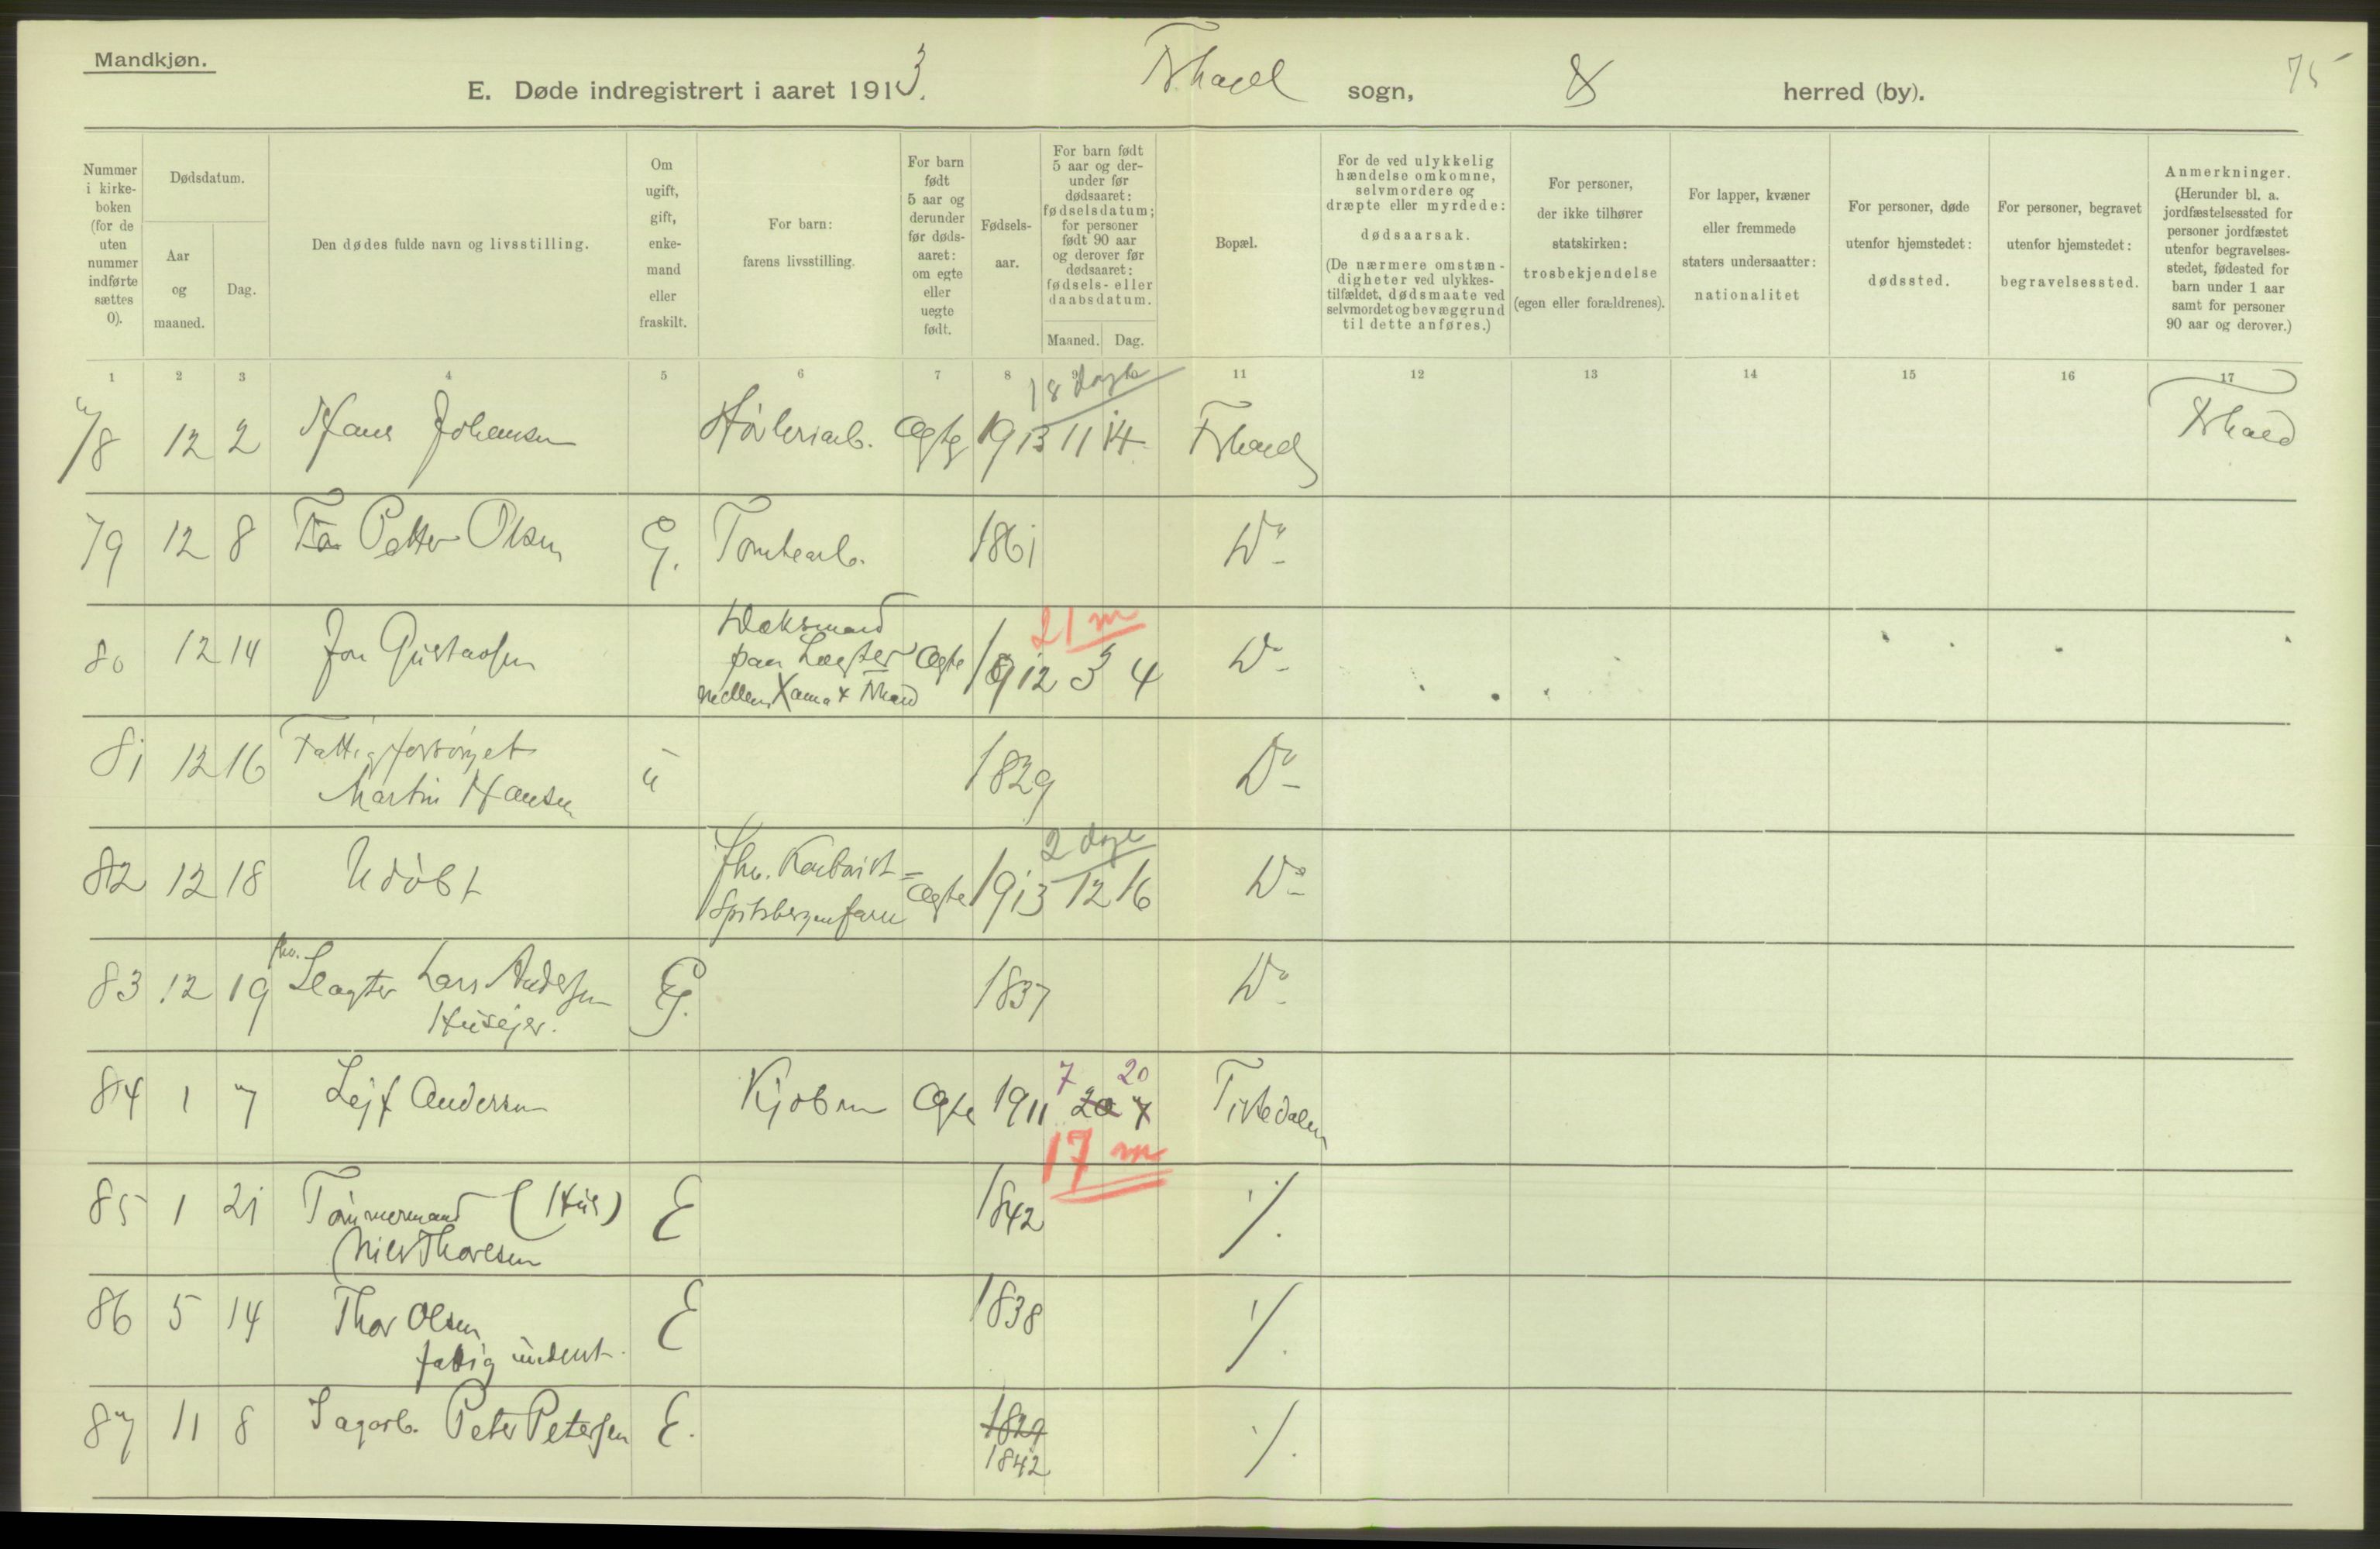 Mandkjøn.
E. Døde indregistrert i aaret 1913. Fr.hald sogn, herred (by). 75
Nummer i kirkeboken (for de uten nummer indførte sættes 0).
Dødsdatum.
Aar og maaned.
Dag.
Den dødes fulde navn og livsstilling.
Om ugift, gift, enkemand eller fraskilt.
For barn: farens livsstilling.
For barn født 5 aar og derunder før dødsaaret: om egte eller uegte født.
Fødselsaar.
For barn født 5 aar og derunder før dødsaaret: fødselsdatum; for personer født 90 aar og derover før dødsaaret: fødsels- eller daabsdatum.
Maaned. Dag.
Bopæl.
For de ved ulykkelig hændelse omkomne, selvmordere og dræpte eller myrdede: dødsaarsak. (De nærmere omstændigheter ved ulykkestilfældet, dødsmaate ved selvmordet og bevæggrund til dette anføres.)
For personer, der ikke tilhører statskirken: trosbekjendelse (egen eller forældrenes).
For lapper, kvæner eller fremmede staters undersaatter: nationalitet
For personer, døde utenfor hjemstedet: dødssted.
For personer, begravet utenfor hjemstedet: begravelsessted.
Anmerkninger. (Herunder bl. a. jordfæstelsessted for personer jordfæstet utenfor begravelsesstedet, fødested for barn under 1 aar samt for personer 90 aar og derover.)
1 2 3 4 5 6 7 8 9 10 11 12 13 14 15 16 17
18 dage
78 12 2 Hans Johansen Høvleriarb. Ægte 1913 11 14 Fr.hald Fr.hald
79 12 8 Petter Olsen G. Tomtearb. 1861 Do
21 m
80 12 14 Jon Gustavsen Dæksmand paa Lægter mellem & Fr.hald Ægte 1912 3 4 Do
81 12 16 Fattigforsørget Martin Hansen u 1829 Do
2 dage
82 12 18 Udøbt fhv. Spitsbergenfarer Ægte 1913 12 16 Do
83 12 19 fhv. Slagter Lars Andersen Husejer. G. 1837 Do
7 20
84 1 7 Lejf Andersen Kjøbm Ægte 1911 20 7 Tistedalen
17 m
85 1 21 Tømmermand (Hus) Nils Thoresen E 1842 ./.
86 5 14 Thor Olsen fattigunderst. E 1838 ./.
87 11 8 Sagarb. Peter Petersen E. 1829 1842 ./.